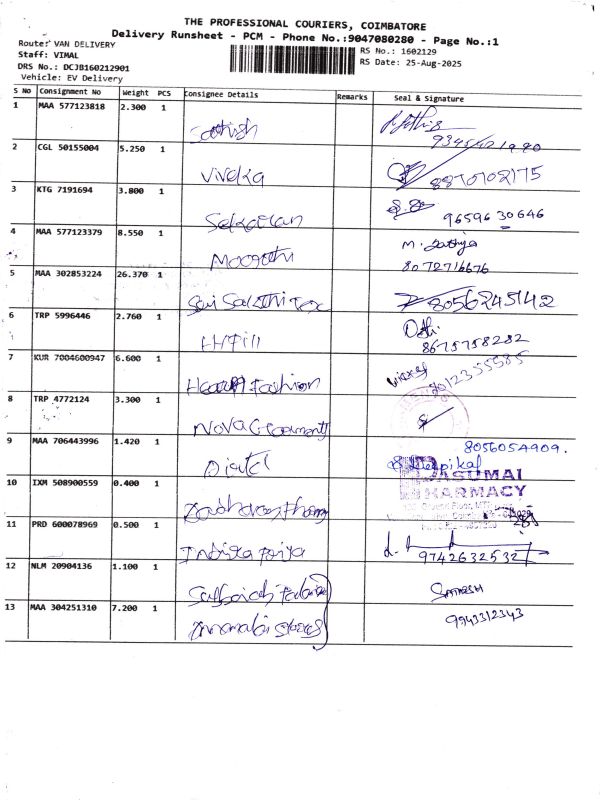 THE PROFESSIONAL COURIERS, COIMBATORE
Delivery Runsheet - PCM - Phone No.:9047080280 - Page No.:1
Route: VAN DELIVERY
Staff: VIMAL
DRS No.: DCJB160212901
Vehicle: EV Delivery
RS No.: 1602129
RS Date: 25-Aug-2025
S No Consignment No Weight PCS Consignee Details Remarks Seal & Signature
1 MAA 577123818 2.300 1 Sathish
2 CGL 50155004 5.250 1 Viveka 8870702175
3 KTG 7191694 3.800 1 Sekaran 96596 30646
4 MAA 577123379 8.550 1 Moorthi M. Sathiya
8072716676
5 MAA 302853224 26.370 1 Sai Sakthi Tex 8056245142
6 TRP 5996446 2.760 1 8675758282
7 KUR 7004600947 6.600 1 Fashion
8 TRP 4772124 3.300 1 Nova Garments
9 MAA 706443996 1.420 1 8056054909.
PASUMAI
PHARMACY
10 IXM 508900559 0.400 1
11 PRD 600078969 0.500 1 Indhira Priya 9742632532
12 NLM 20904136 1.100 1 SATHESH
13 MAA 304251310 7.200 1 Stores 9943312343